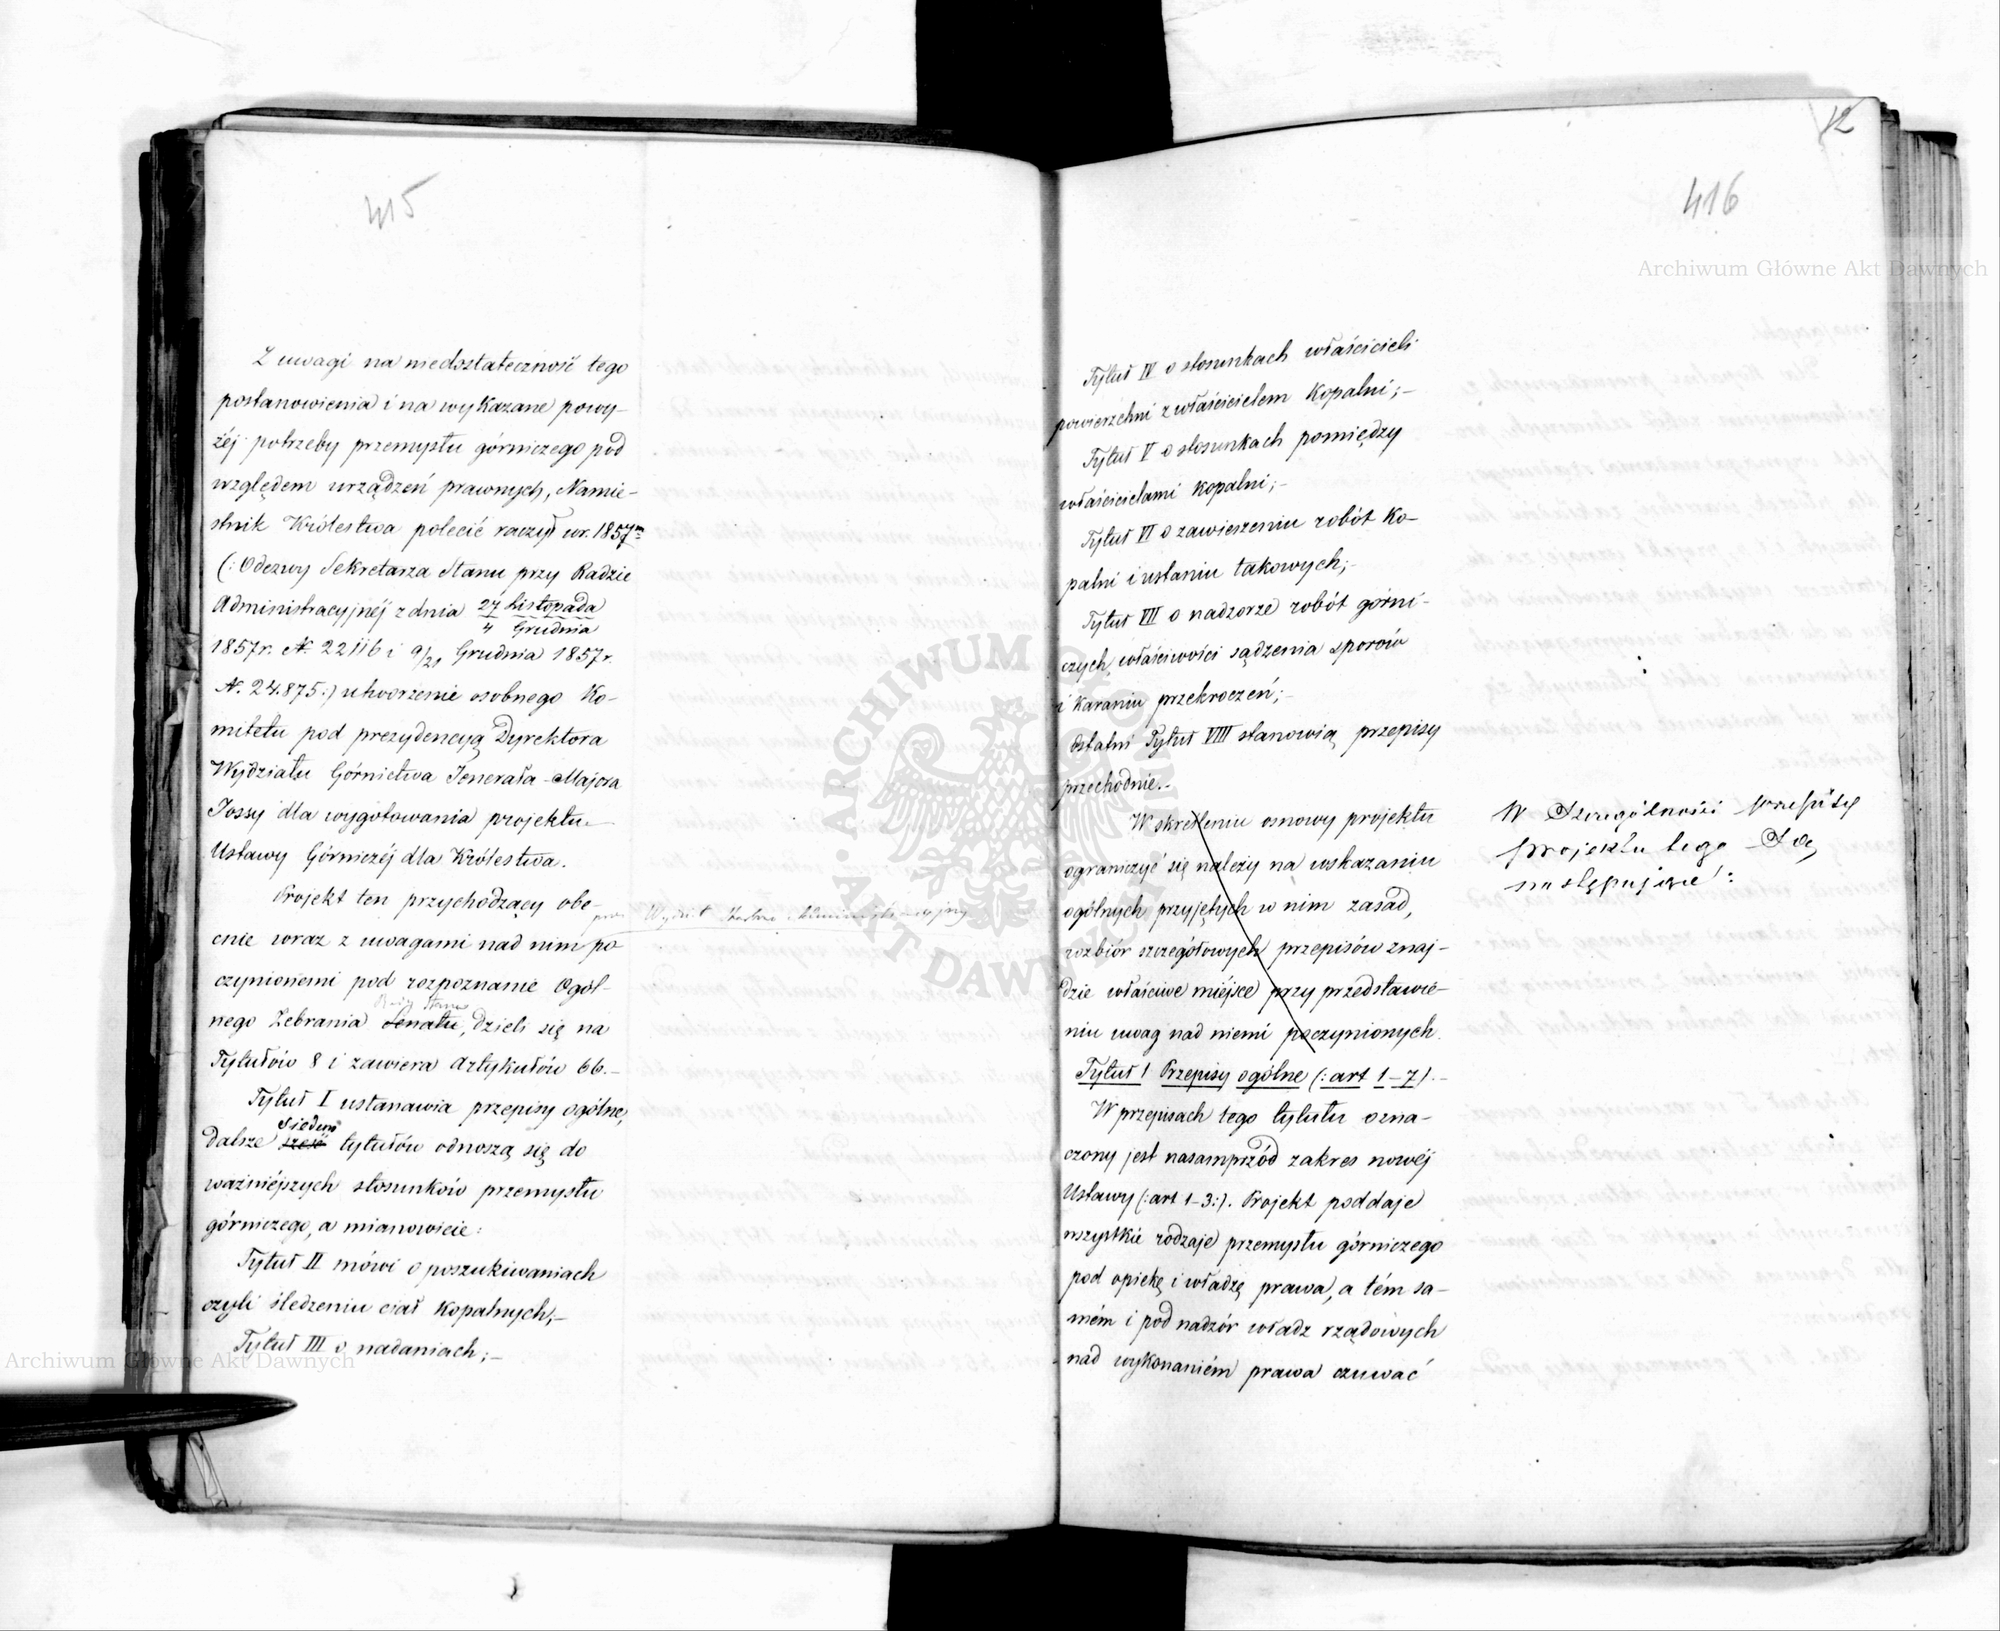 415
Z uwagi na niedostateczność tego
postanowienia i na wykazane powy-
żéj potrzeby przemysłu górniczego pod
względem urządzeń prawnych, Namie-
stnik Królestwa polecić raczył w r. 1857m
(: Odezwy Sekretarza Stanu przy Radzie
Administracyjnéj z dnia 27 Listopada
4 Grudnia
1857 r. N. 22116 i 9/21 Grudnia 1857 r.
N. 24.875.) utworzenie osobnego Ko-
mitetu pod prezydencyą Dyrektora
Wydziału Górnictwa Jenerała-Majora
Jossy dla wygotowania projektu
Ustawy Górniczéj dla Królestwa.
Projekt ten przychodzący obe-
przez Wydział
cnie wraz z uwagami nad nim po
czynionemi pod rozpoznanie Ogól-
Rady Stanu
nego Zebrania Senatu, dzieli się na
Tytułów 8 i zawiera Artykułów 66.-
Tytuł I ustanawia przepisy ogólne,
siedem
dalsze sześć tytułów odnoszą się do
ważniéjszych stosunków przemysłu
górniczego, a mianowicie:
Tytuł II mówi o poszukiwaniach
czyli śledzeniu ciał kopalnych;-
Tytuł III o nadaniach;-
12
416
Tytuł IV o stosunkach właścicieli
powierzchni z właścicielem kopalni;-
Tytuł V o stosunkach pomiędzy
właścicielami kopalni;-
Tytuł VI o zawieszeniu robót ko-
palni i ustaniu takowych;-
Tytuł VII o nadzorze robót górni-
czych, właściwości sądzenia sporów
i karaniu przekroczeń;-
Ostatni Tytuł VIII stanowią przepisy
przechodnie.-
W skreśleniu osnowy projektu
ograniczyć się należy na wskazaniu
ogólnych przyjętych w nim zasad,
rozbiór szczegółowych przepisów znaj-
dzie właściwe miéjsce przy przedstawie-
niu uwag nad niemi poczynionych.
W Szczególności przepisy
projektu tego Są
następujące:
Tytuł I Przepisy ogólne (: art 1-7).-
W przepisach tego tytułu ozna-
czony jest nasamprzód zakres nowéj
Ustawy (: art 1-3:). Projekt poddaje
wszystkie rodzaje przemysłu górniczego
pod opiekę i władzę prawa, a tém sa-
mém i pod nadzór władz rządowych
nad wykonaniém prawa czuwać
Archiwum Główne Akt Dawnych
Archiwum Główne Akt Dawnych
ARCHIWUM GŁÓWNE AKT DAWNYCH